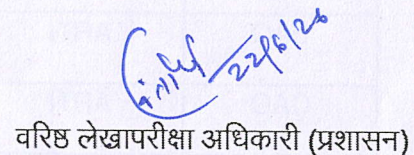 22/6/26
वरिष्ठ लेखापरीक्षा अधिकारी (प्रशासन)